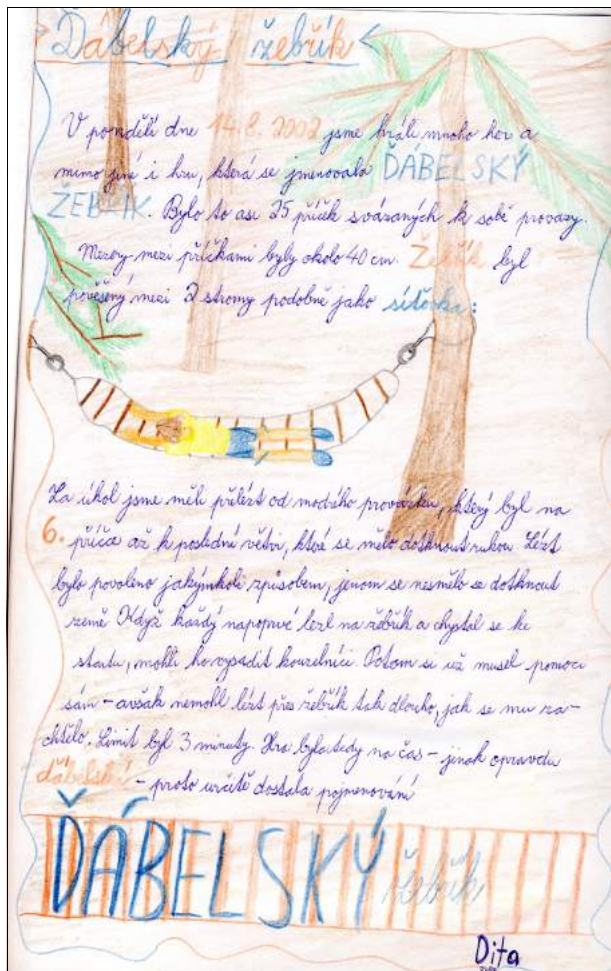 Ďábelský žebřík
V pondělí dne 14.8.2002 jsme hráli mnoho her a
mimo jiné i hru, která se jmenovala ĎÁBELSKÝ
ŽEBŘÍK. Bylo to asi 25 příček svázaných k sobě provazy.
Mezery mezi příčkami byly okolo 40 cm. Žebřík byl
pověšený mezi 2 stromy podobně jako síťovka:
Za úkol jsme měli přelézt od modrého provázku, který byl na
6. příčce až k poslední větvi, které se mělo dotknout rukou. Lézt
bylo povoleno jakýmkoli způsobem, jenom se nesmělo se dotknout
země. Když každý napoprvé lezl na žebřík a chystal se ke
startu, mohli ho vysadit kouzelníci. Potom si už musel pomoci
sám - avšak nemohl lézt přes žebřík tak dlouho, jak se mu za-
chtělo. Limit byl 3 minuty. Hra byla tedy na čas - jinak opravdu
ďábelská - proto určitě dostala pojmenování
ĎÁBELSKÝ žebřík
Dita